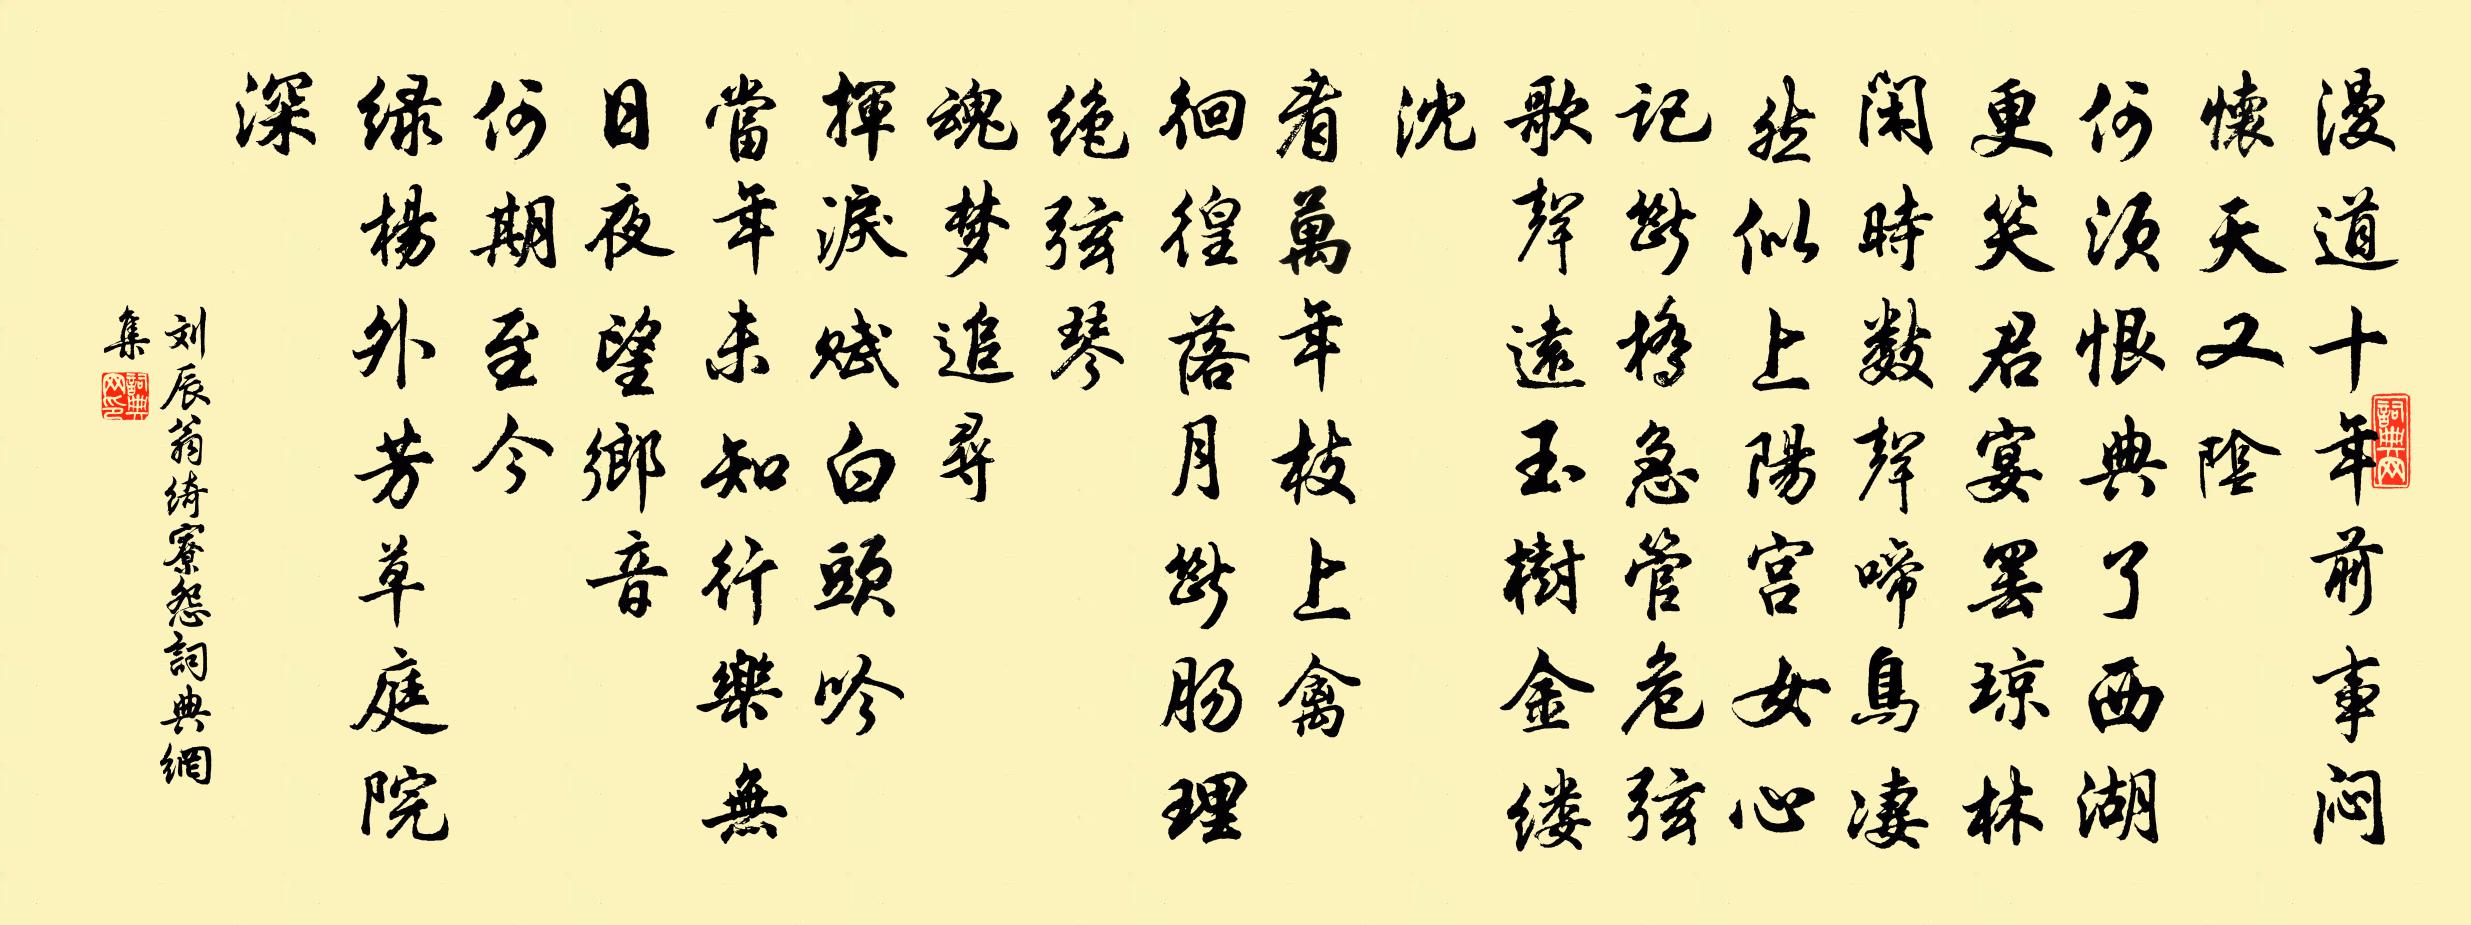 漫道十年前事闷
懷天又陰
何须恨典了西湖
更笑君宴罢琼林
闲時数聲啼鳥凄
然似上陽宫女心
记斷橋急管危弦
歌聲遠玉樹金缕
沈
看萬年枝上禽
徊徨落月斷肠理
绝弦琴
魂梦追尋
揮淚賦白頭吟
當年未知行樂無
日夜望鄉音
何期至今
绿楊外芳草庭院
深
刘辰翁绮寮怨詞典網
集
詞典网
詞典网印